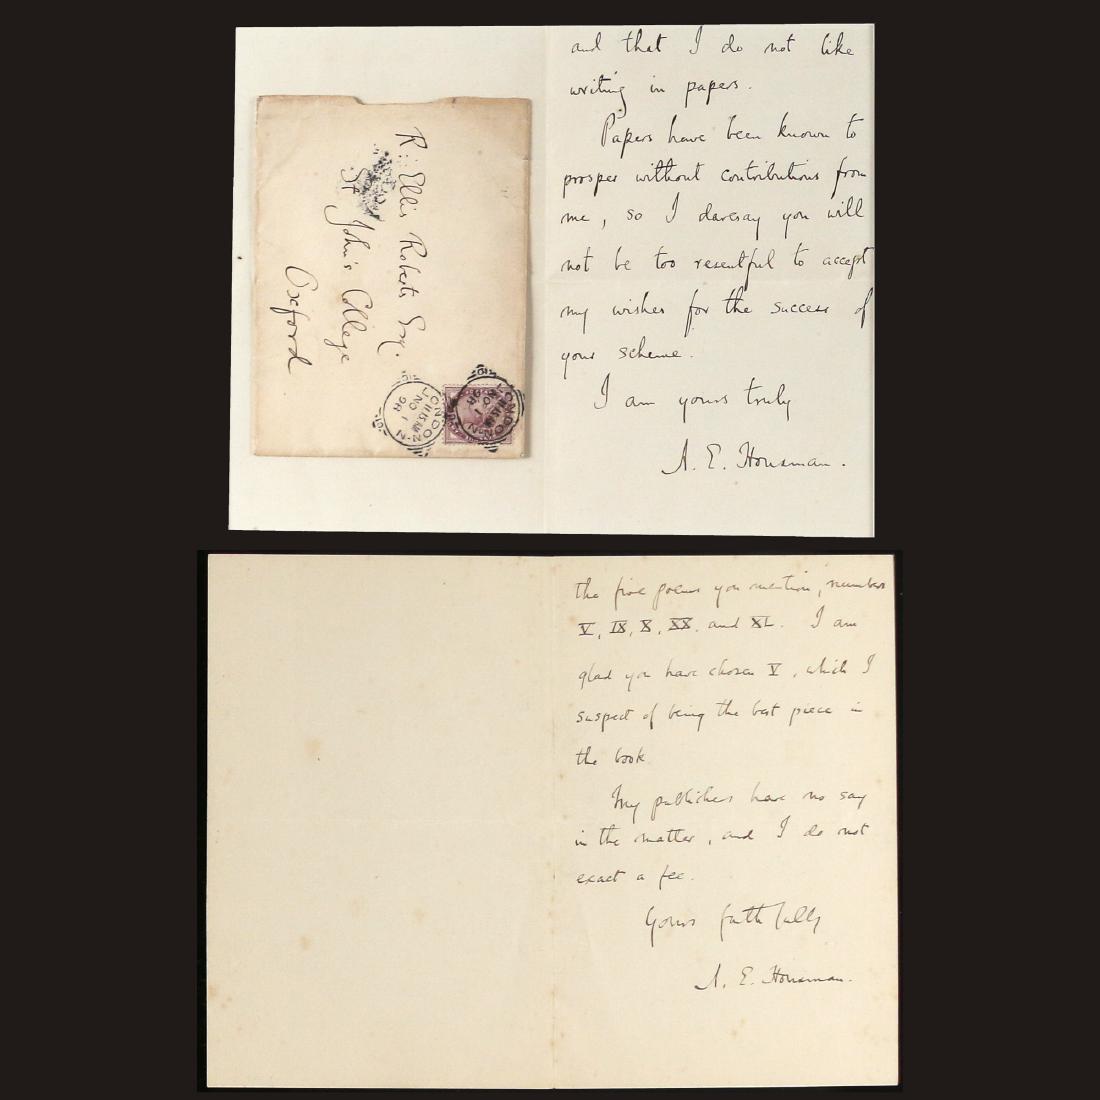 and that I do not like
writing in papers.
Papers have been known to
prosper without contributions from
me, so I daresay you will
not be too resentful to accept
my wishes for the success of
your scheme.
I am yours truly
A. E. Housman.
R. Ellis Roberts Esq.
St John's College
Oxford
LONDON·N
11.15 AM
NO 1
98
LONDON·N
11.15 AM
NO 1
98
the five poems you mention, numbers
V, IX, X, XX, and XL. I am
glad you have chosen V, which I
suspect of being the best piece in
the book.
My publishers have no say
in the matter, and I do not
exact a fee.
Yours faithfully
A. E. Housman.